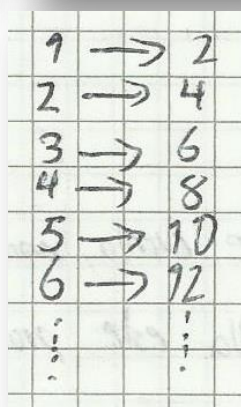 1 → 2
2 → 4
3 → 6
4 → 8
5 → 10
6 → 12
⋮ ⋮